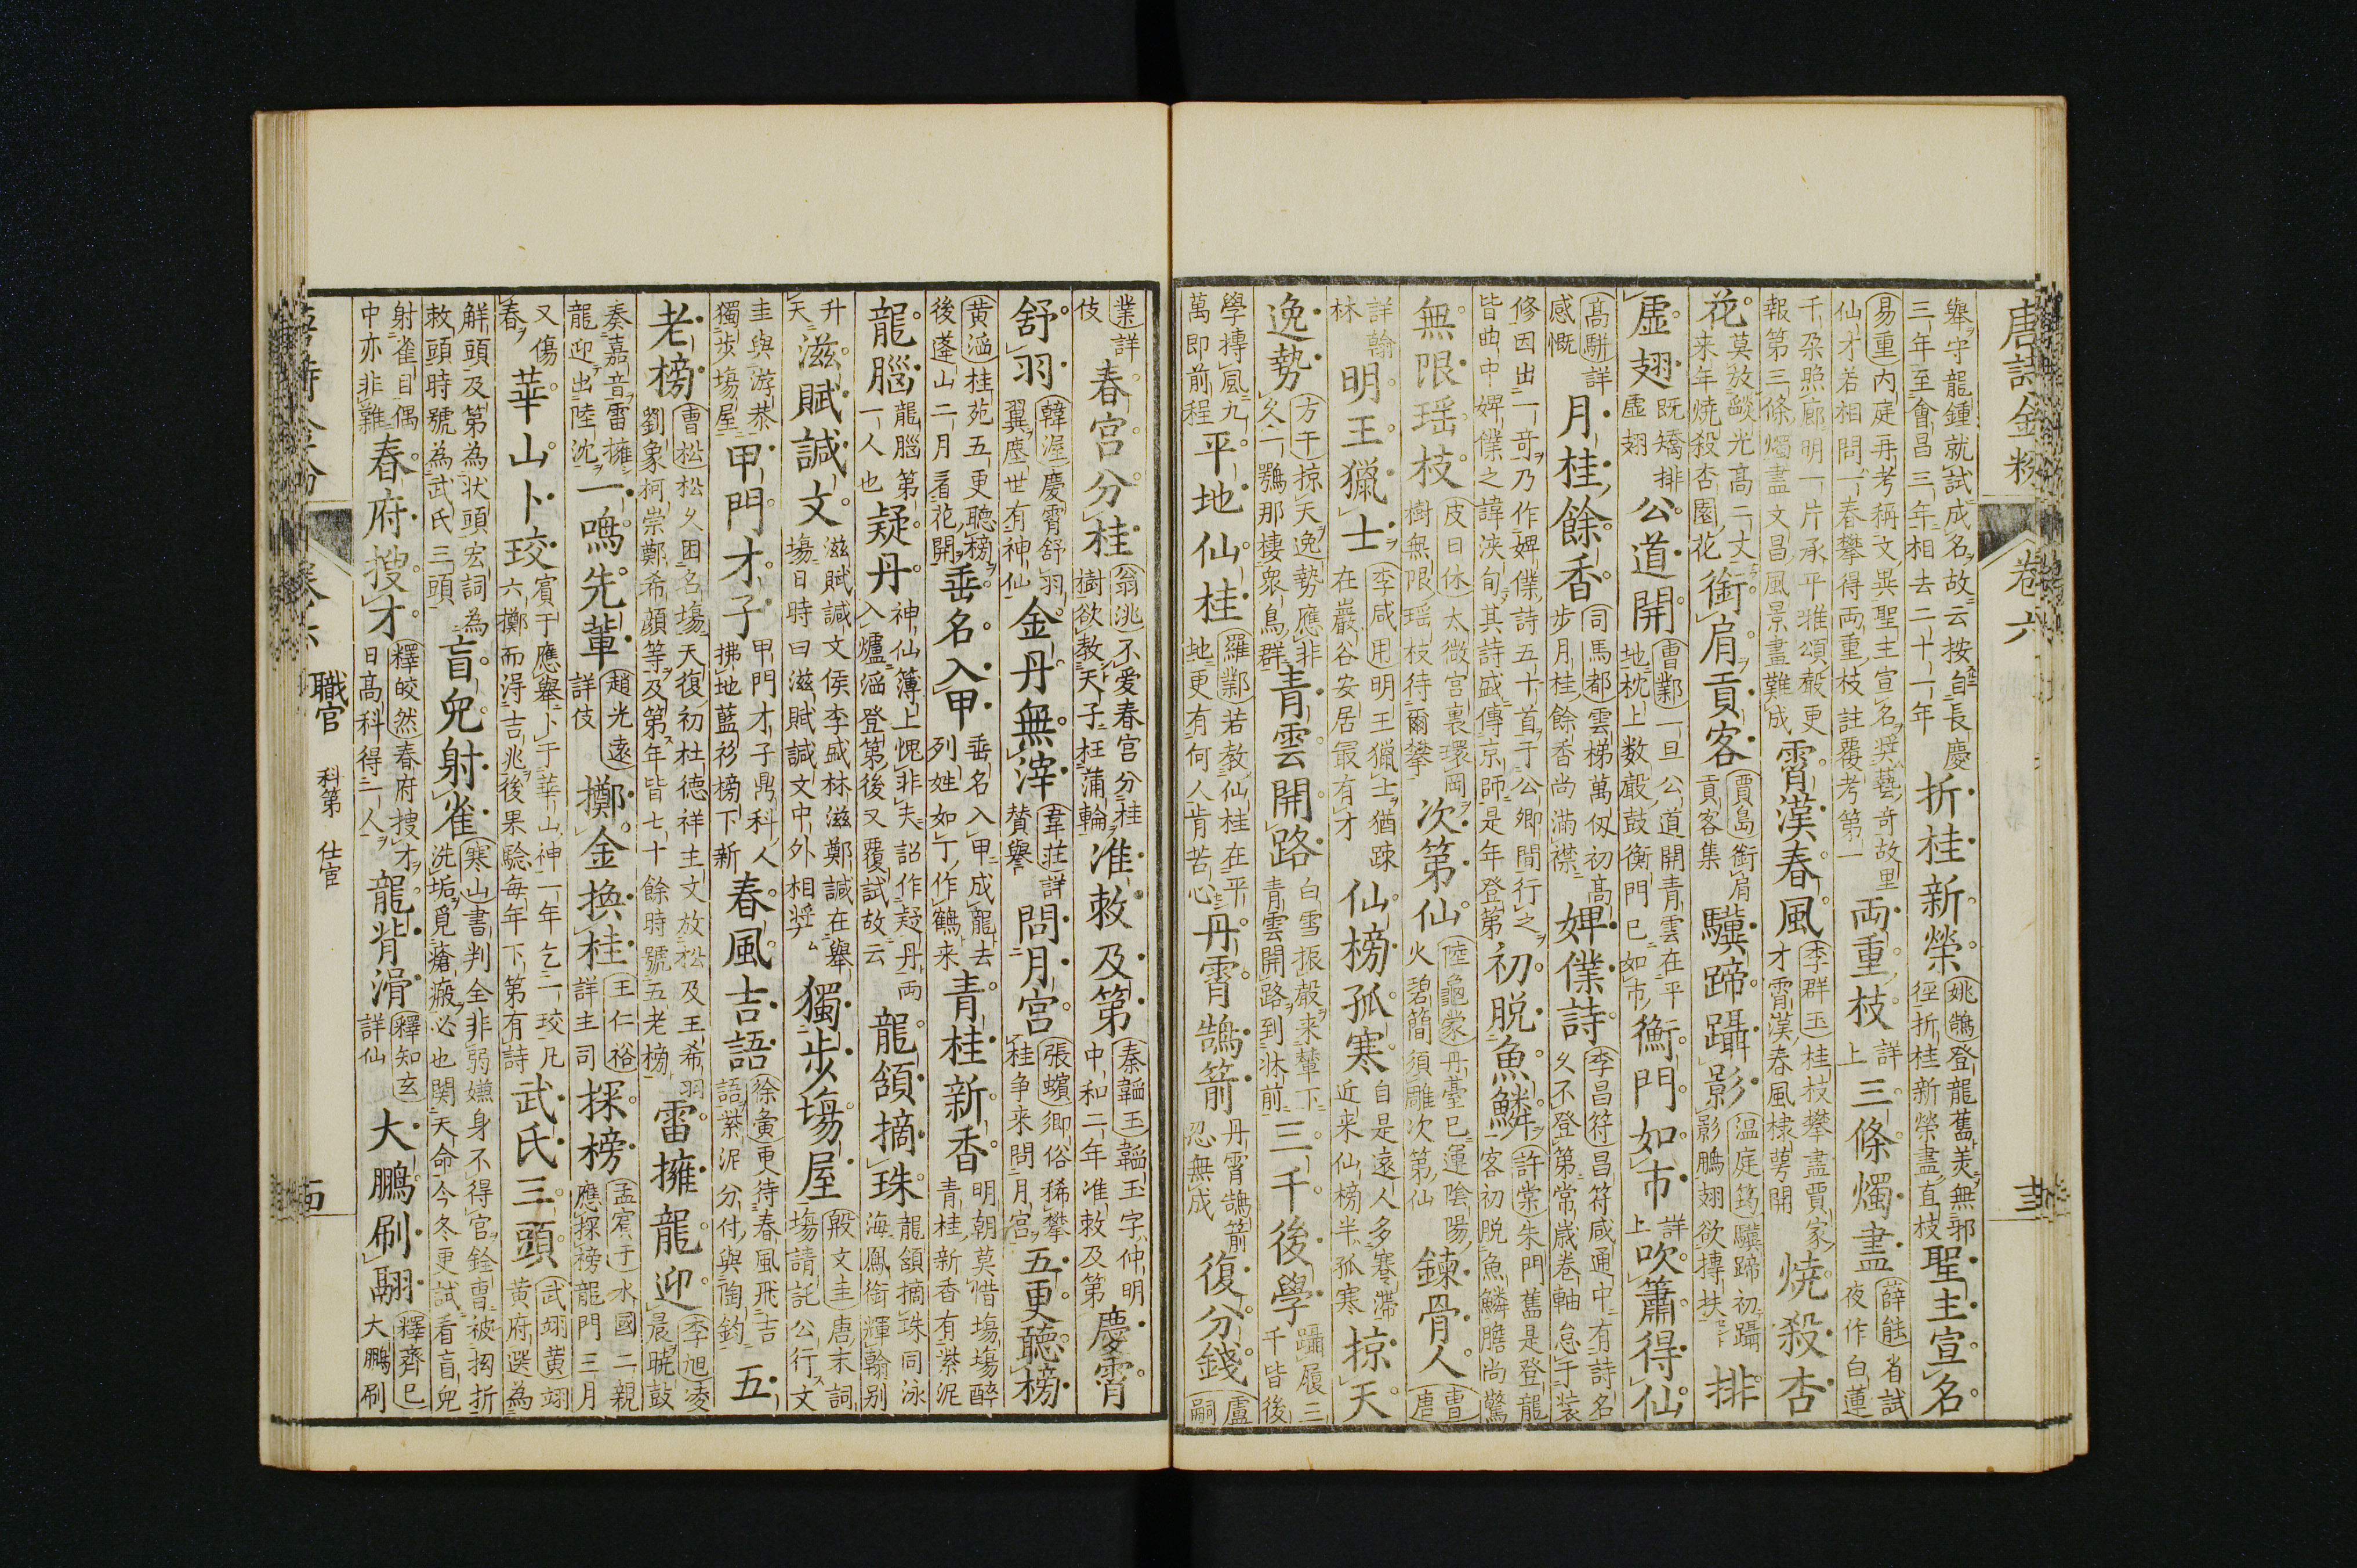 唐詩金粉 卷六
舉守龍鍾就試成名故云按自長慶三年至會昌三年相去二十一年 折桂新榮 姚鵠登龍舊美無邪徑折桂新榮盡直枝 聖主宣名
易重内庭再考稱文異聖主宣名奨藝奇故里仙才若相問一春攀得両重枝註覆考第一 両重枝 詳上 三條燭盡 薛能省試夜作白蓮
千朶照廊明一片承平雅頌聲更報第三條燭盡文昌風景畫難成 霄漢春風 李群玉桂枝攀盡賈家才霄漢春風棣萼開 焼殺杏
花 莫放燄光高二丈来年焼殺杏園花 銜肩貢客 賈島銜肩貢客集 驥蹄躡影 温庭筠驥蹄初躡影鵬翅欲摶扶 排
虚翅 既矯排虚翅 公道開 曹鄴一旦公道開青雲在平地枕上数聲鼓衡門已如市 衡門如市 詳上 吹簫得仙
高駢詳感慨 月桂餘香 司馬都雲梯萬仭初高歩月桂餘香尚滿襟 婢僕詩 李昌符昌符咸通中有詩名久不登第常歳卷軸怠于装
修因出一竒乃作婢僕詩五十首于公卿間行之皆曲中婢僕之諱浹旬其詩盛傳京師是年登第 初脱魚鱗 許棠朱門舊是登龍客初脱魚鱗膽尚驚
無限瑶枝 皮日休太微宮裏環岡樹無限瑶枝待爾攀 次第仙 陸龜蒙丹臺已運陰陽火碧簡須雕次第仙 錬骨人 曹唐
詳翰林 明王獵士 李咸用明王獵士猶踈在巖谷安居最有才 仙榜孤寒 自是遠人多寒滯近来仙榜半孤寒 掠天
逸勢 方干掠天逸勢應非久一鶚那棲衆鳥群 青雲開路 白雪振聲来輦下青雲開路到牀前 三千後學 躡履三千皆後
學摶風九萬即前程 平地仙桂 羅鄴若教仙桂在平地更有何人肯苦心 丹霄鵠箭 丹霄鵠箭忍無成 復分錢 盧嗣
業詳伎 春宮分桂 翁洮不愛春宮分桂樹欲教天子枉蒲輪 准敕及第 秦韜玉韜玉字仲明中和二年准敕及第 慶霄
舒羽 韓渥慶霄舒羽翼塵世有神仙 金丹無滓 韋荘詳賛舉 問月宮 張蠙卿俗稀攀桂争来問月宮 五更聽榜
黄滔桂苑五更聽榜後蓬山二月看花開 垂名入甲 垂名入甲成龍去列姓如丁作鶴来 青桂新香 明朝莫惜塲塲醉青桂新香有紫泥
龍腦 龍腦第一人也 疑丹 神仙簿上愧非夫詔作疑丹両入爐滔登第後又覆試故云 龍頷摘珠 龍頷摘珠同泳海鳳銜輝翰别
升天 滋賦諴文 滋賦諴文侯李盛林滋鄭諴在舉塲日時曰滋賦諴文中外相奨 獨歩塲屋 殷文圭唐末詞塲請託公行文
圭與游恭獨歩塲屋 甲門才子 甲門才子鼎科人拂地藍衫榜下新 春風吉語 徐夤更待春風飛吉語紫泥分付與陶鈞 五
老榜 曹松松久困名塲天復初杜德祥主文放松及王希羽劉象柯崇鄭希顔等及第年皆七十餘時號五老榜 雷擁龍迎 李旭凌晨曉鼓
奏嘉音雷擁龍迎出陸沈 一鳴先輩 趙光遠詳伎 擲金換桂 王仁裕詳主司 探榜 孟賓于水國二親應探榜龍門三月
又傷春 華山卜珓 賓于應舉卜于華山神一年乞一珓凡六擲而得吉兆後果驗每年下第有詩 武氏三頭 武翊黄翊黄府選為
解頭及第為状頭宏詞為敕頭時號為武氏三頭 盲兒射雀 寒山書判全非弱嫌身不得官銓曹被拗折洗垢覓瘡瘢必也関天命今冬更試看盲兒
射雀目偶中亦非難 春府搜才 釋皎然春府搜才日高科得一人 龍背滑 釋知玄詳仙 大鵬刷翮 釋齊己大鵬刷
職官 科第 仕宦